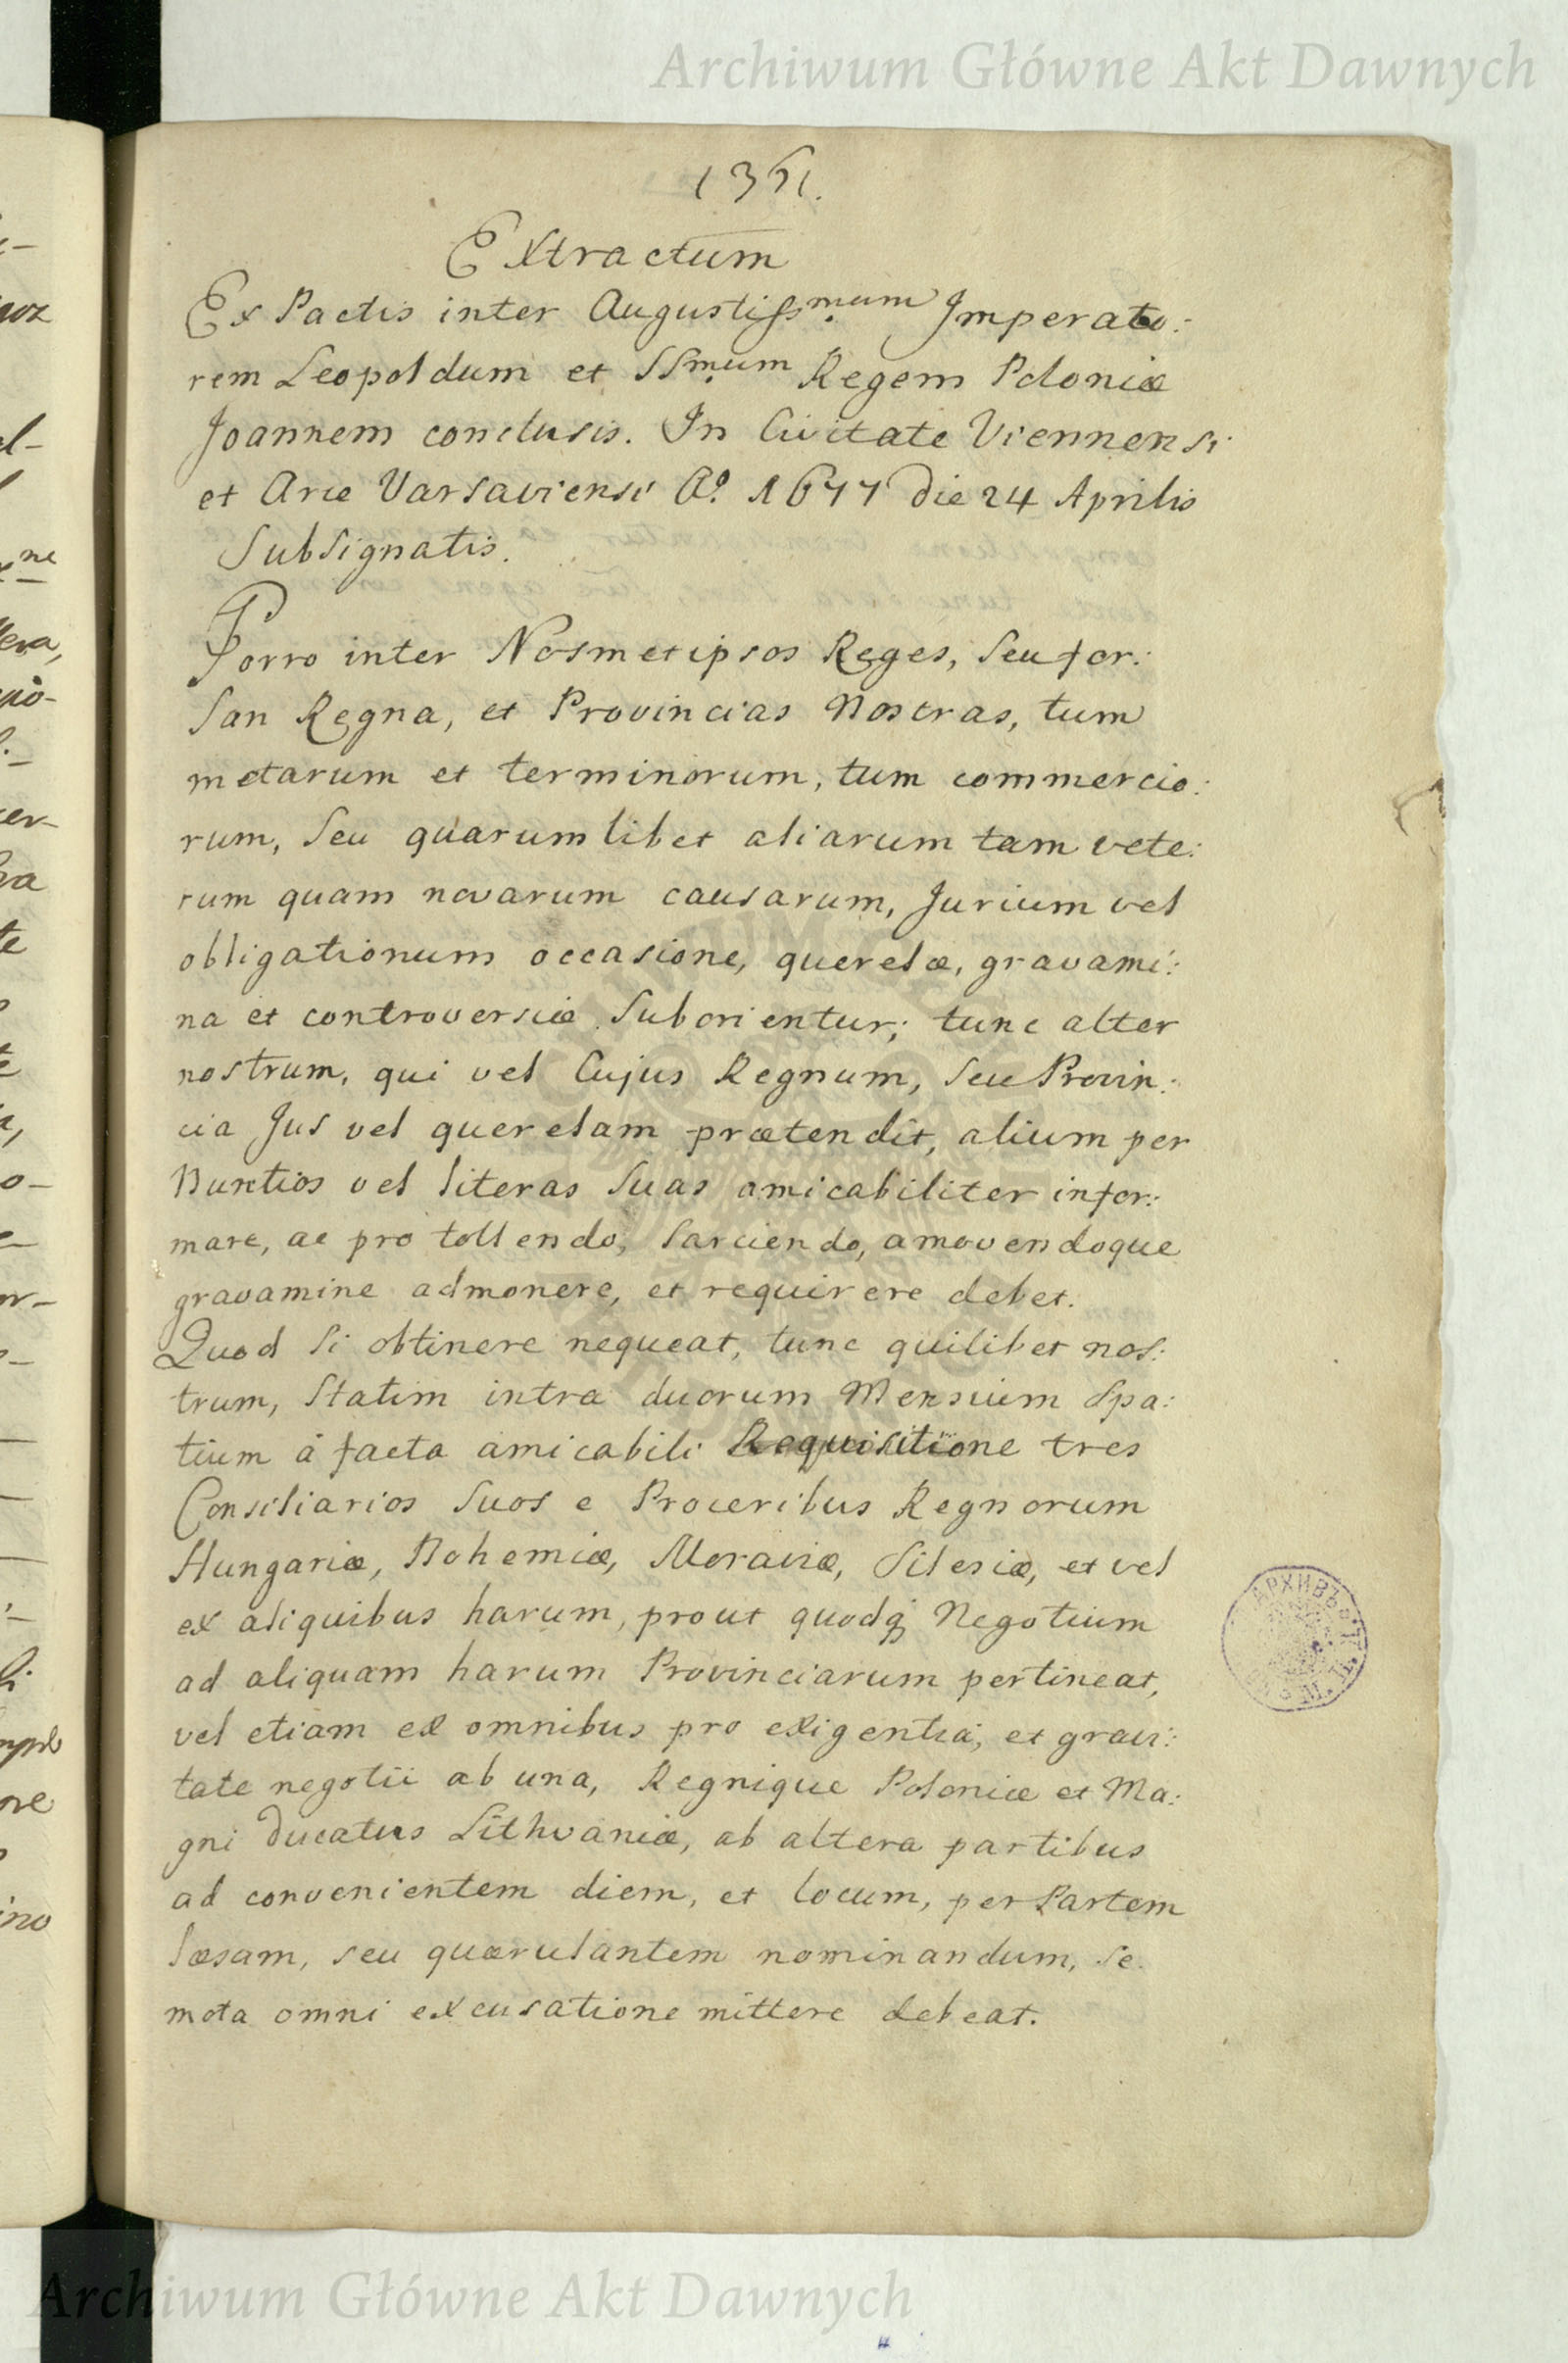 Archiwum Główne Akt Dawnych
Extractum
Ex Pactis inter Augustissmum Imperato:
rem Leopoldum et SSmum Regem Poloniæ
Joannem conclusis. In Civitate Viennensi
et Arce Varsaviensi Ao. 1677 die 24 Aprilis
Subsignatis.
Porro inter Nosmetipsos Reges, Seu for:
San Regna, et Provincias Nostras, tum
metarum et terminorum, tum commercio:
rum, Seu quarumlibet aliarum tam vete:
rum quam novarum causarum, Jurium vel
obligationum occasione, querelæ, gravami:
na et controversiæ Suborientur; tunc alter
nostrum, qui vel Cujus Regnum, Seu Provin:
cia Jus vel querelam prætendit, alium per
Nuntios vel literas Suas amicabiliter infor:
mare, ac pro tollendo, Sarciendo, amovendoque
gravamine admonere, et requirere debet.
Quod Si obtinere nequeat, tunc quilibet nos:
trum, Statim intra duorum Mensium Spa:
tium á facta amicabili Requisitione tres
Consiliarios Suos e Proceribus Regnorum
Hungariæ, Bohemiæ, Moraviæ, Silesiæ, et vel
ex aliquibus harum, prout quodq Negotium
ad aliquam harum Provinciarum pertineat,
vel etiam ex omnibus pro exigentia, et gravi:
tate negotii ab una, Regnique Poloniæ et Ma:
gni Ducatus Lithvaniæ, ab altera partibus
ad convenientem diem, et locum, per Partem
læsam, seu quærulantem nominandum, Se
mota omni excusatione mittere debeat.
Archiwum Główne Akt Dawnych